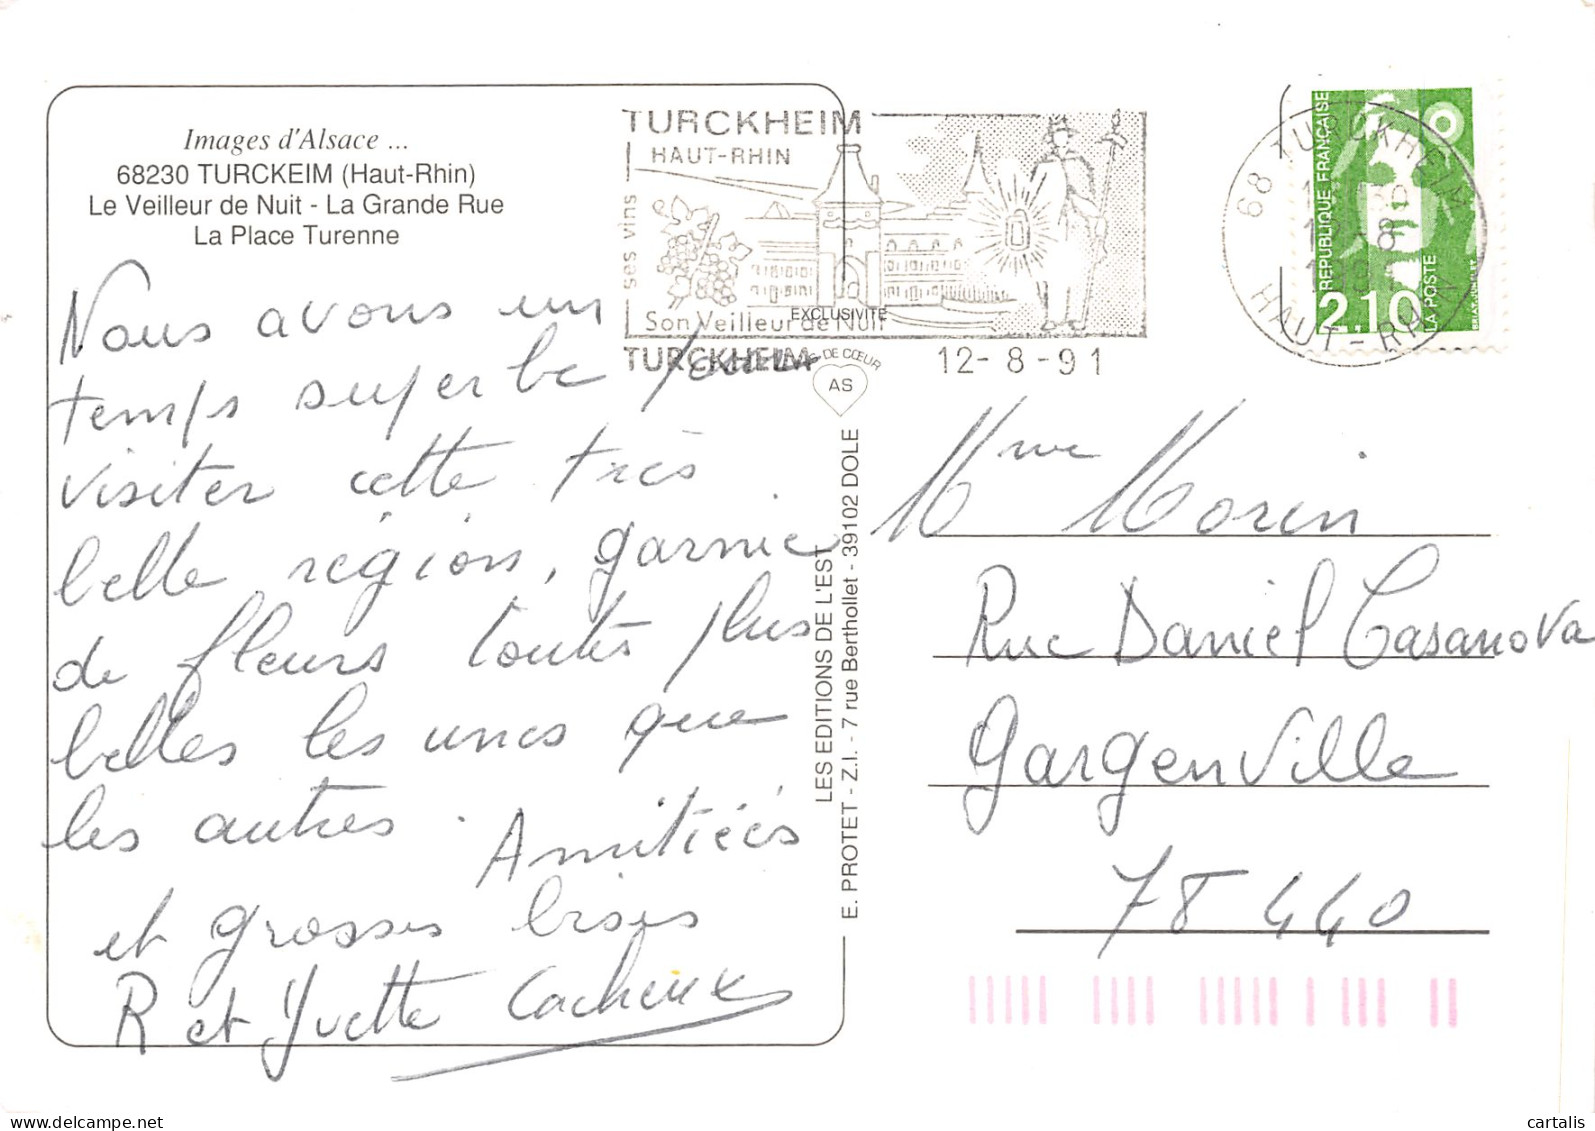 Images d'Alsace ...
68230 TURCKEIM (Haut-Rhin)
Le Veilleur de Nuit - La Grande Rue
La Place Turenne
Nous avons eu un
temps superbe pour
visiter cette très
belle région, garnie
de fleurs toutes plus
belles les unes que
les autres. Amitiés
et grosses bises
R et Yvette Cacheux
TURCKHEIM
HAUT-RHIN
ses vins
Son Veilleur de Nuit
TURCKHEIM
12-8-91
EXCLUSIVITÉ
DE CŒUR
AS
LES EDITIONS DE L'EST
E. PROTET - Z.I. - 7 rue Berthollet - 39102 DOLE
68 TURCKHEIM
HAUT-RHIN
REPUBLIQUE FRANÇAISE
2,10
LA POSTE
Mme Morin
Rue Daniel Casanova
Gargenville
78440
cartalis
delcampe.net